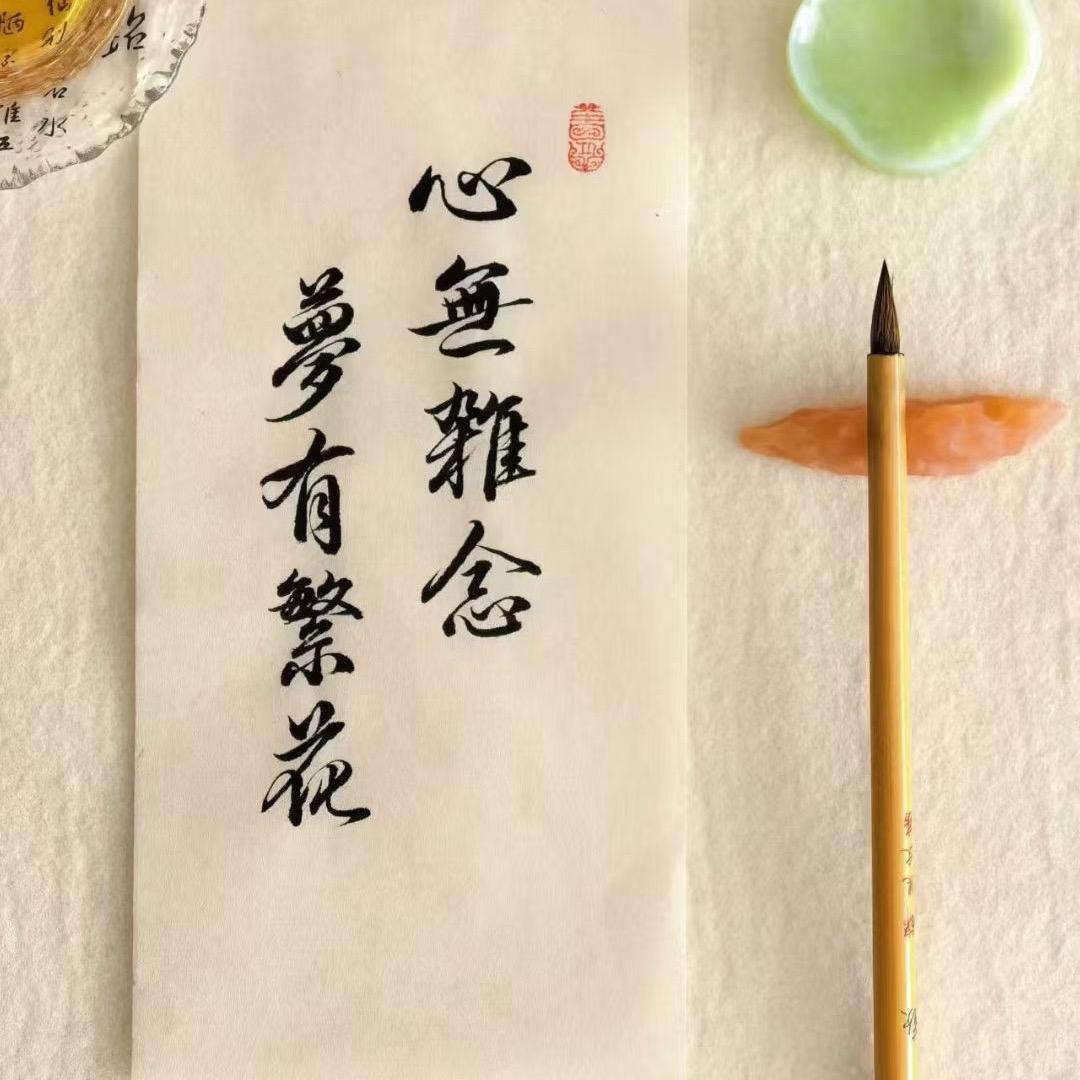 心無雜念
夢有繁花